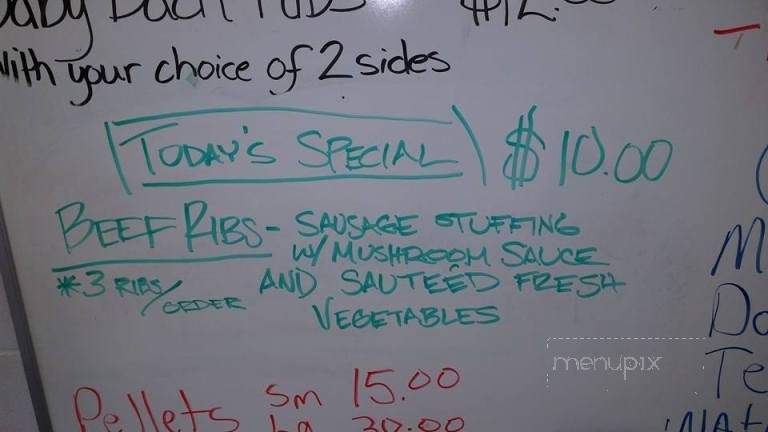 Baby Back Ribs $12.00
With your choice of 2 sides
TODAY'S SPECIAL $10.00
BEEF RIBS - SAUSAGE STUFFING
W/ MUSHROOM SAUCE
*3 RIBS/ORDER AND SAUTEÉD FRESH
VEGETABLES
menupix
Pellets Sm 15.00
Lg 30.00